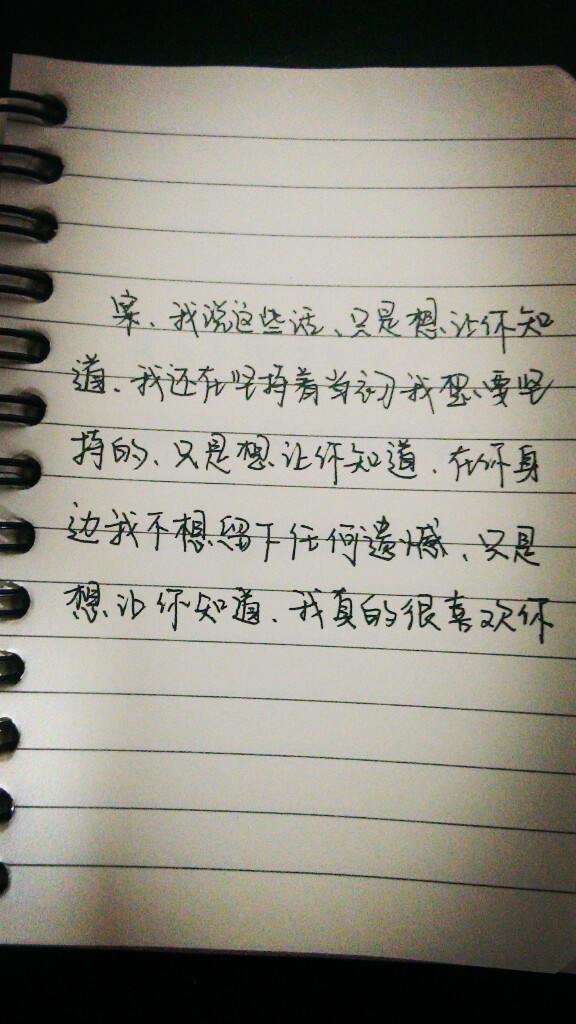 案、我说这些话、只是想让你知
道、我还在坚持着当初我想要坚
持的、只是想让你知道、在你身
边我不想留下任何遗憾、只是
想让你知道、我真的很喜欢你